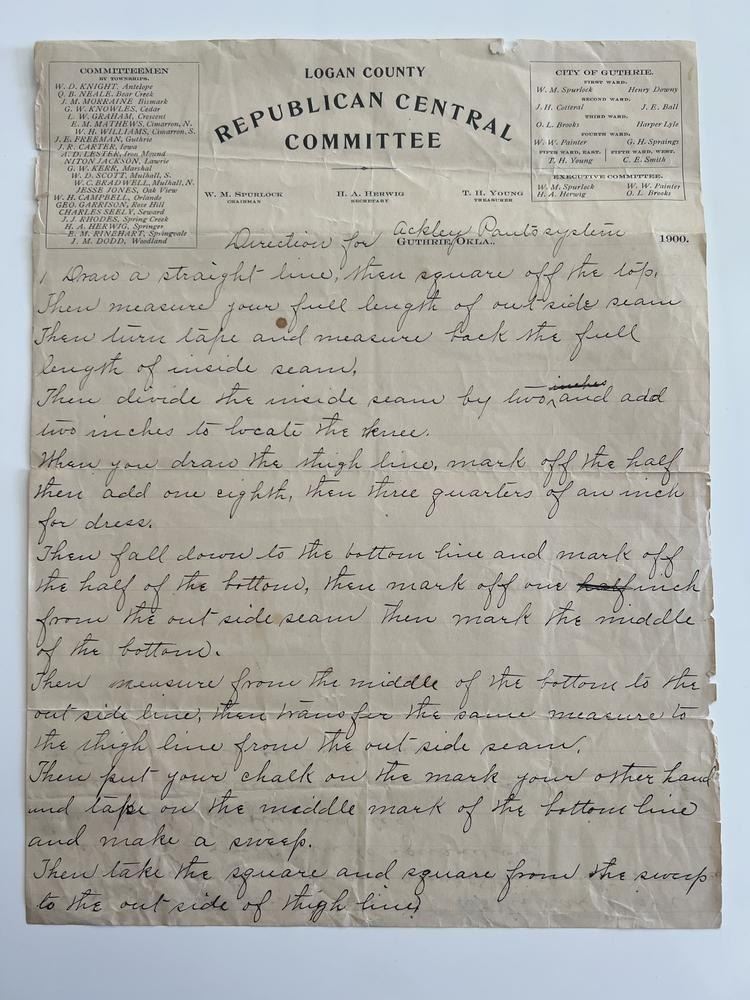 COMMITTEEMEN
BY TOWNSHIPS.
W. D. KNIGHT, Antelope
Q. B. NEALE, Bear Creek
J. M. MORRAINE Bismark
G. W. KNOWLES, Cedar
L. W. GRAHAM, Crescent
E. M. MATHEWS, Cimarron, N.
W. H. WILLIAMS, Cimarron, S.
J. E. FREEMAN, Guthrie
J. R. CARTER, Iowa
A. D. LESTER, Iron Mound
NITON JACKSON, Lawrie
G. W. KERR, Marshal
W. D. SCOTT, Mulhall, S.
W. C. BRADWELL, Mulhall, N.
JESSE JONES, Oak View
W. H. CAMPBELL, Orlando
GEO. GARRISON, Rose Hill
CHARLES SEELY, Seward
J. J. RHODES, Spring Creek
H. A. HERWIG, Springer
E. M. RINEHART, Springvale
J. M. DODD, Woodland
LOGAN COUNTY
REPUBLICAN CENTRAL
COMMITTEE
W. M. SPURLOCK
CHAIRMAN
H. A. HERWIG
SECRETARY
T. H. YOUNG
TREASURER
CITY OF GUTHRIE.
FIRST WARD:
W. M. Spurlock Henry Downy
SECOND WARD:
J. H. Cotteral J. E. Ball
THIRD WARD:
O. L. Brooks Harper Lyle
FOURTH WARD:
W. W. Painter G. H. Spraings
FIFTH WARD, EAST. FIFTH WARD, WEST.
T. H. Young C. E. Smith
EXECUTIVE COMMITTEE.
W. M. Spurlock W. W. Painter
H. A. Herwig O. L. Brooks
GUTHRIE, OKLA., 1900.
Direction for Ackley Pants system
1 Draw a straight line, then square off the top,
Then measure your full length of out side seam
Then turn tape and measure back the full
length of inside seam,
Then divide the inside seam by two, inches and add
two inches to locate the knee.
When you draw the thigh line, mark off the half
then add one eighth, then three quarters of an inch
for dress.
Then fall down to the bottom line and mark off
the half of the bottom, then mark off one half inch
from the out side seam then mark the middle
of the bottom.
Then measure from the middle of the bottom to the
out side line, then transfer the same measure to
the thigh line from the out side seam,
Then put your chalk on the mark your other hand
and tape on the middle mark of the bottom line
and make a sweep.
Then take the square and square from the sweep
to the out side of thigh line